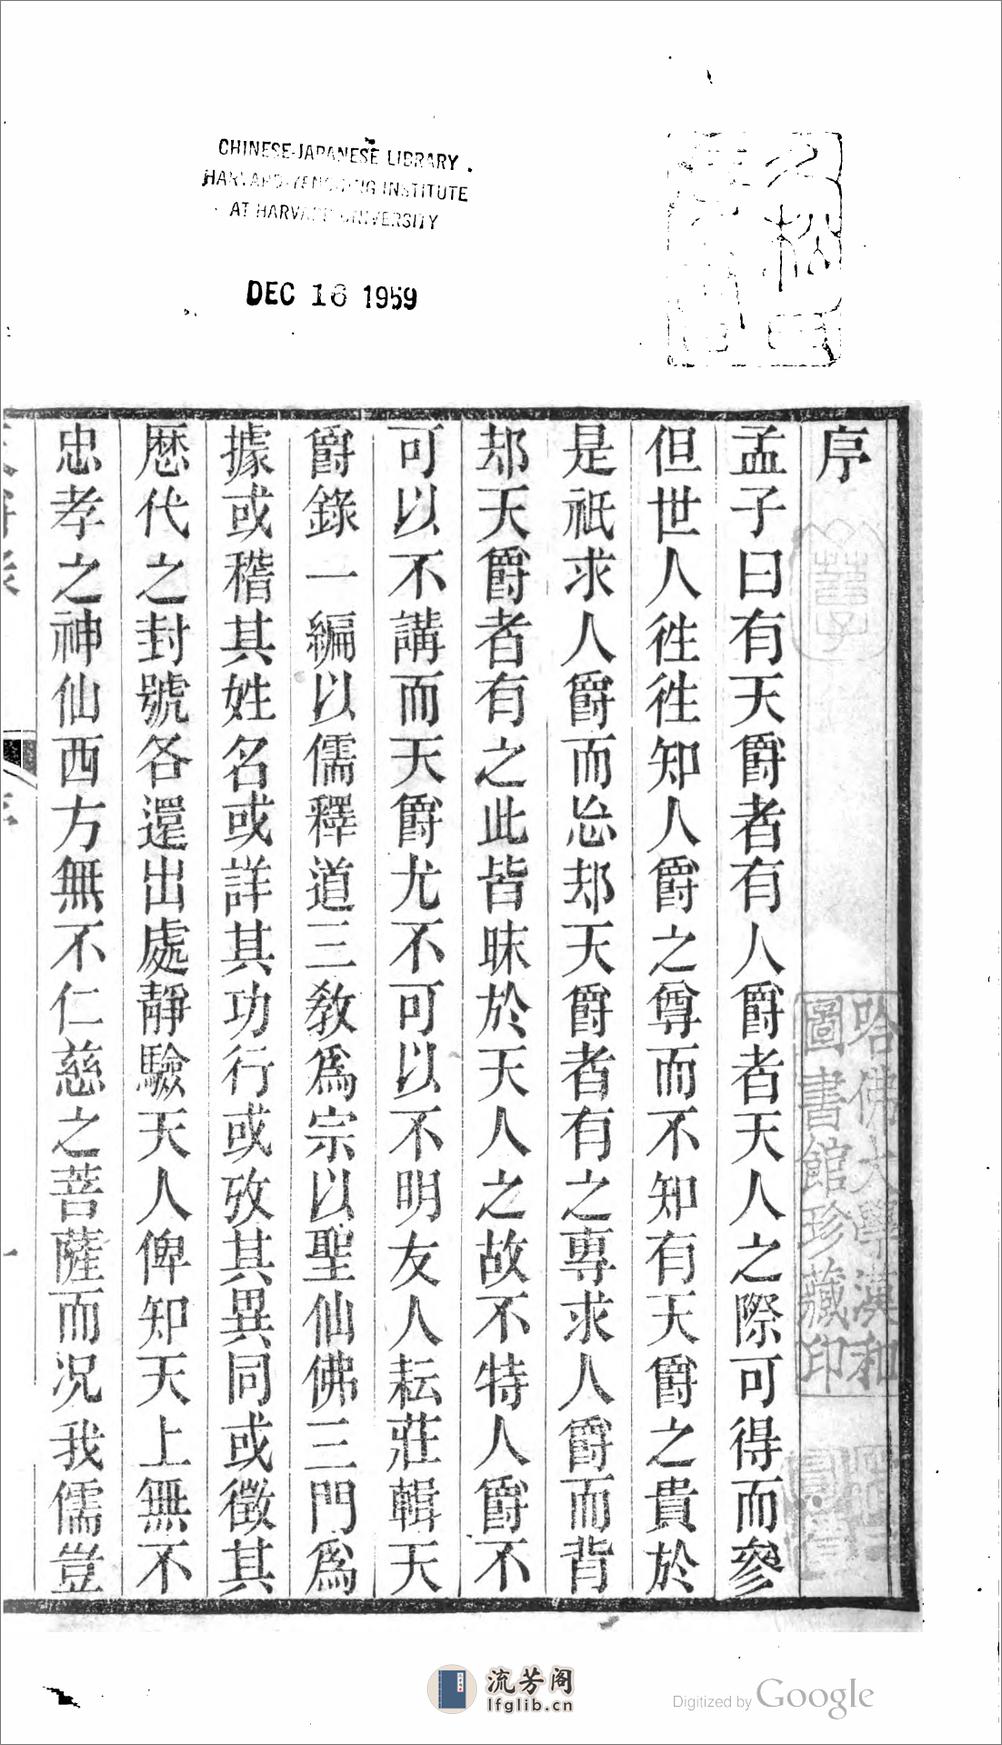 CHINESE-JAPANESE LIBRARY
HARVARD-YENCHING INSTITUTE
AT HARVARD UNIVERSITY
DEC 16 1959
序
孟子曰有天爵者有人爵者天人之際可得而參
但世人徃徃知人爵之尊而不知有天爵之貴於
是祇求人爵而忩却天爵者有之專求人爵而背
却天爵者有之此皆昧於天人之故不特人爵不
可以不講而天爵尤不可以不明友人耘莊輯天
爵錄一編以儒釋道三教爲宗以聖仙佛三門爲
據或稽其姓名或詳其功行或攷其異同或徵其
歷代之封號各還出處靜驗天人俾知天上無不
忠孝之神仙西方無不仁慈之菩薩而况我儒豈
哈佛大學漢和
圖書館珍藏印
流芳阁
lfglib.cn
Digitized by Google